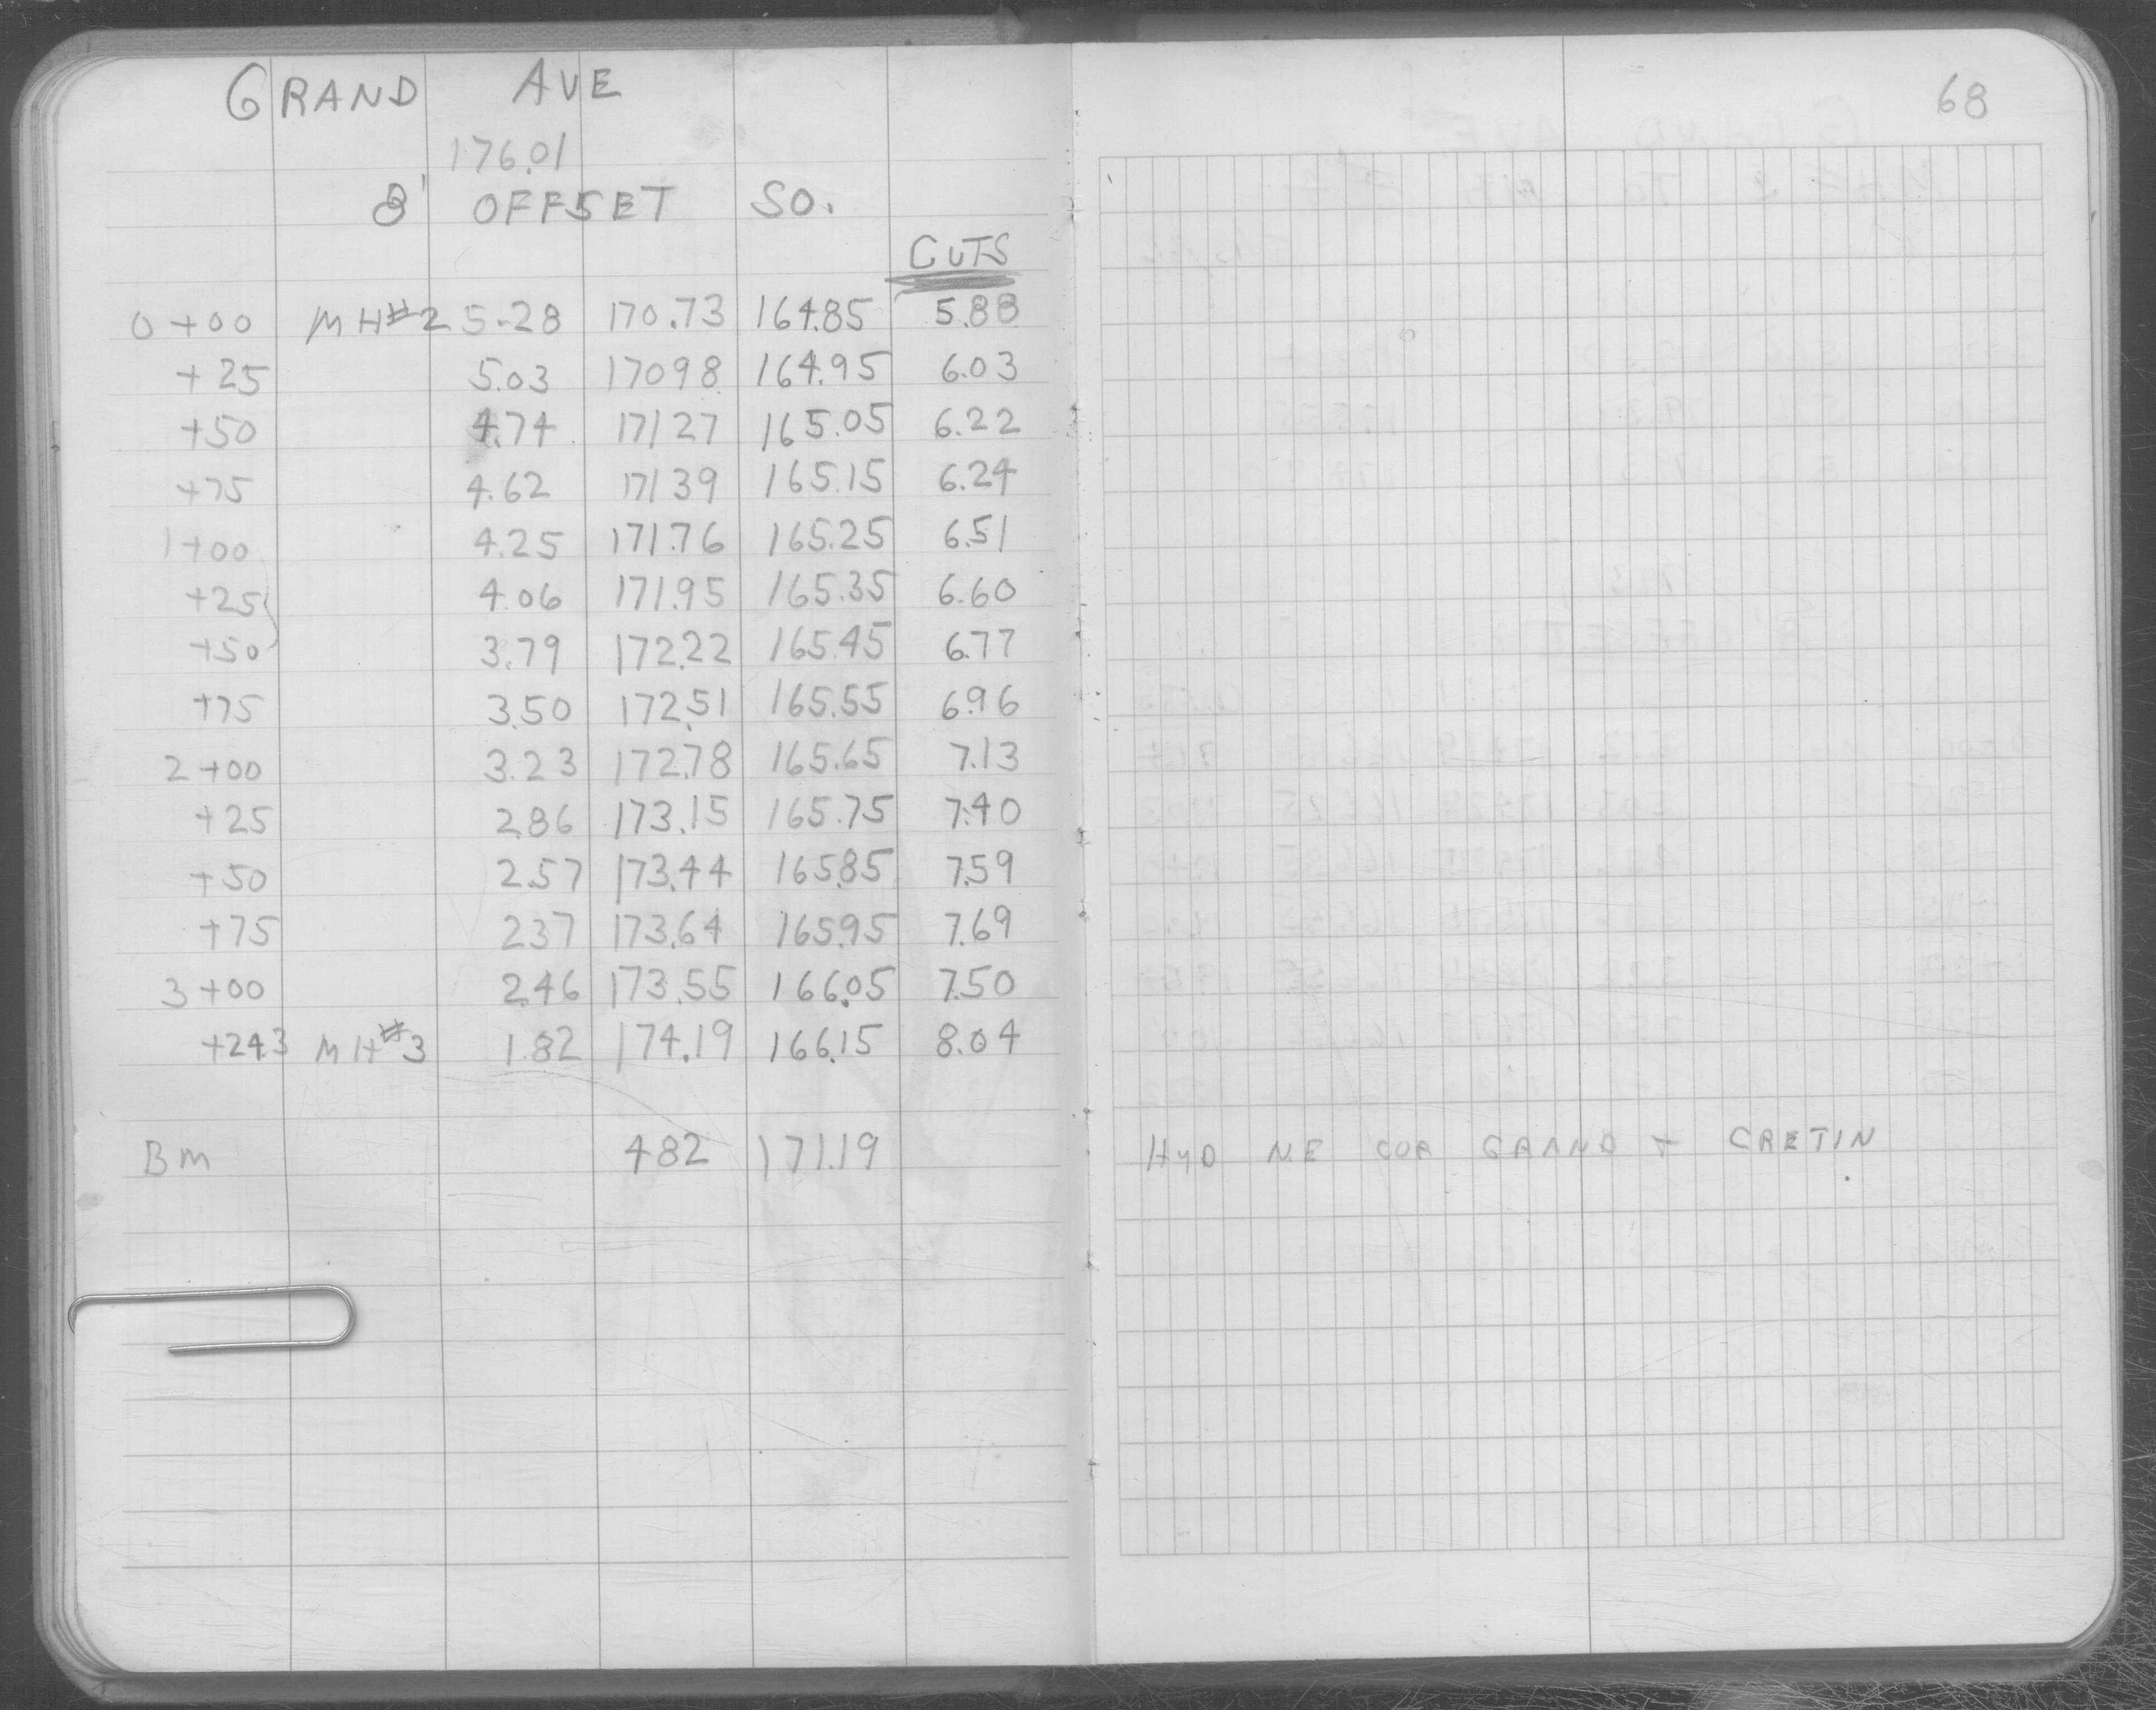 GRAND AVE
176.01
8' OFFSET SO.
CUTS
0+00 MH#2 5.28 170.73 164.85 5.88
+25 5.03 170 98 164.95 6.03
+50 4.74 171 27 165.05 6.22
+75 4.62 171 39 165.15 6.24
1+00 4.25 171.76 165.25 6.51
+25 4.06 171.95 165.35 6.60
+50 3.79 172.22 165.45 6.77
+75 3.50 172.51 165.55 6.96
2+00 3.23 172.78 165.65 7.13
+25 2.86 173.15 165.75 7.40
+50 2.57 173.44 165.85 7.59
+75 2 37 173.64 165.95 7.69
3+00 2.46 173.55 166.05 7.50
+24.3 MH#3 1.82 174.19 166.15 8.04
BM 4 82 171.19
68
HYD N.E COR GRAND + CRETIN